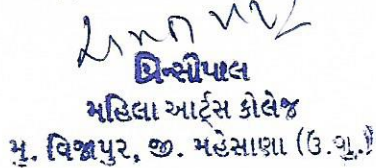 પ્રિન્સીપાલ
મહિલા આર્ટ્સ કોલેજ
મુ. વિજાપુર, જી. મહેસાણા (ઉ.ગુ.)